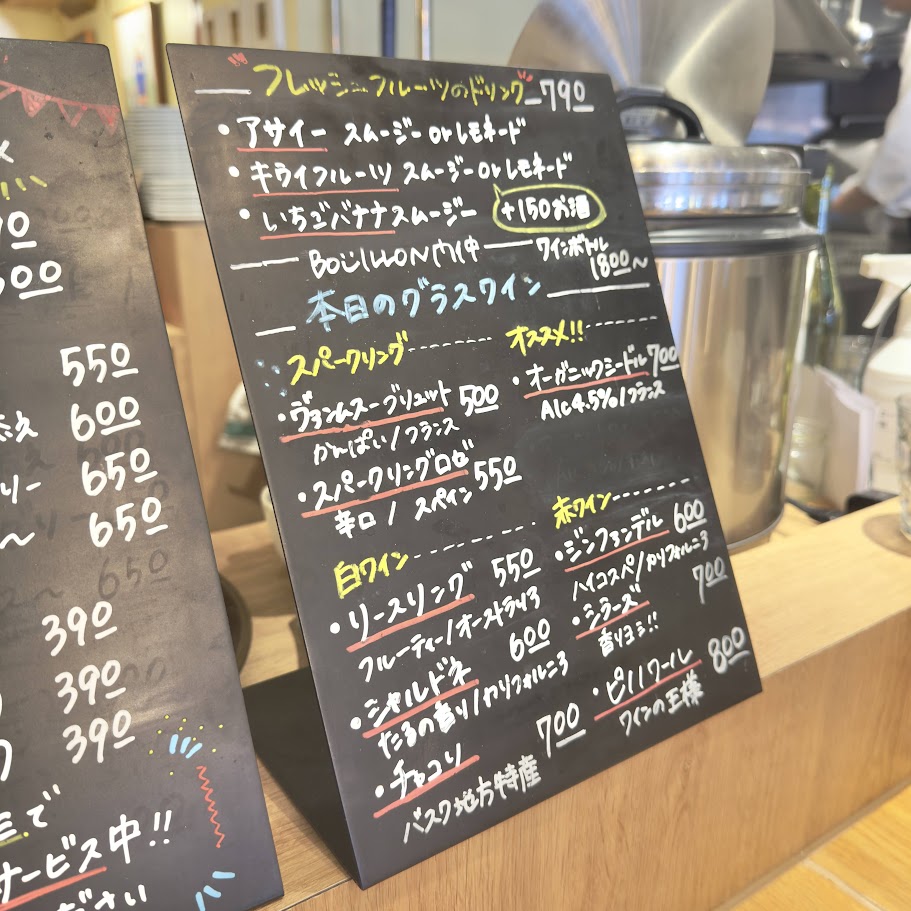 フレッシュフルーツのドリング 790
・アサイー スムージー or レモネード
・キライフルーツ スムージー or レモネード
・いちごバナナスムージー +150お酒
BOUILLON 内中 ワインボトル 1800〜
本日のグラスワイン
スパークリング
・ヴァンムスーブリュット 500
かんぱい/フランス
・スパークリングロゼ 550
辛口/スペイン
オススメ!!
・オーガニックシードル 700
Alc4.5%/フランス
白ワイン
・リースリング 550
フルーティー/オーストラリア
・シャルドネ 600
たるの香り/カリフォルニア
・チャコリ 700
バスク地方特産
赤ワイン
・ジンファンデル 600
ハイコスペ/カリフォルニア
・シラーズ 700
香りヨシ!!
・ピノノワール 800
ワインの王様
550
600
リー 650
〜 650
390
390
390
で
サービス中!!
ださい